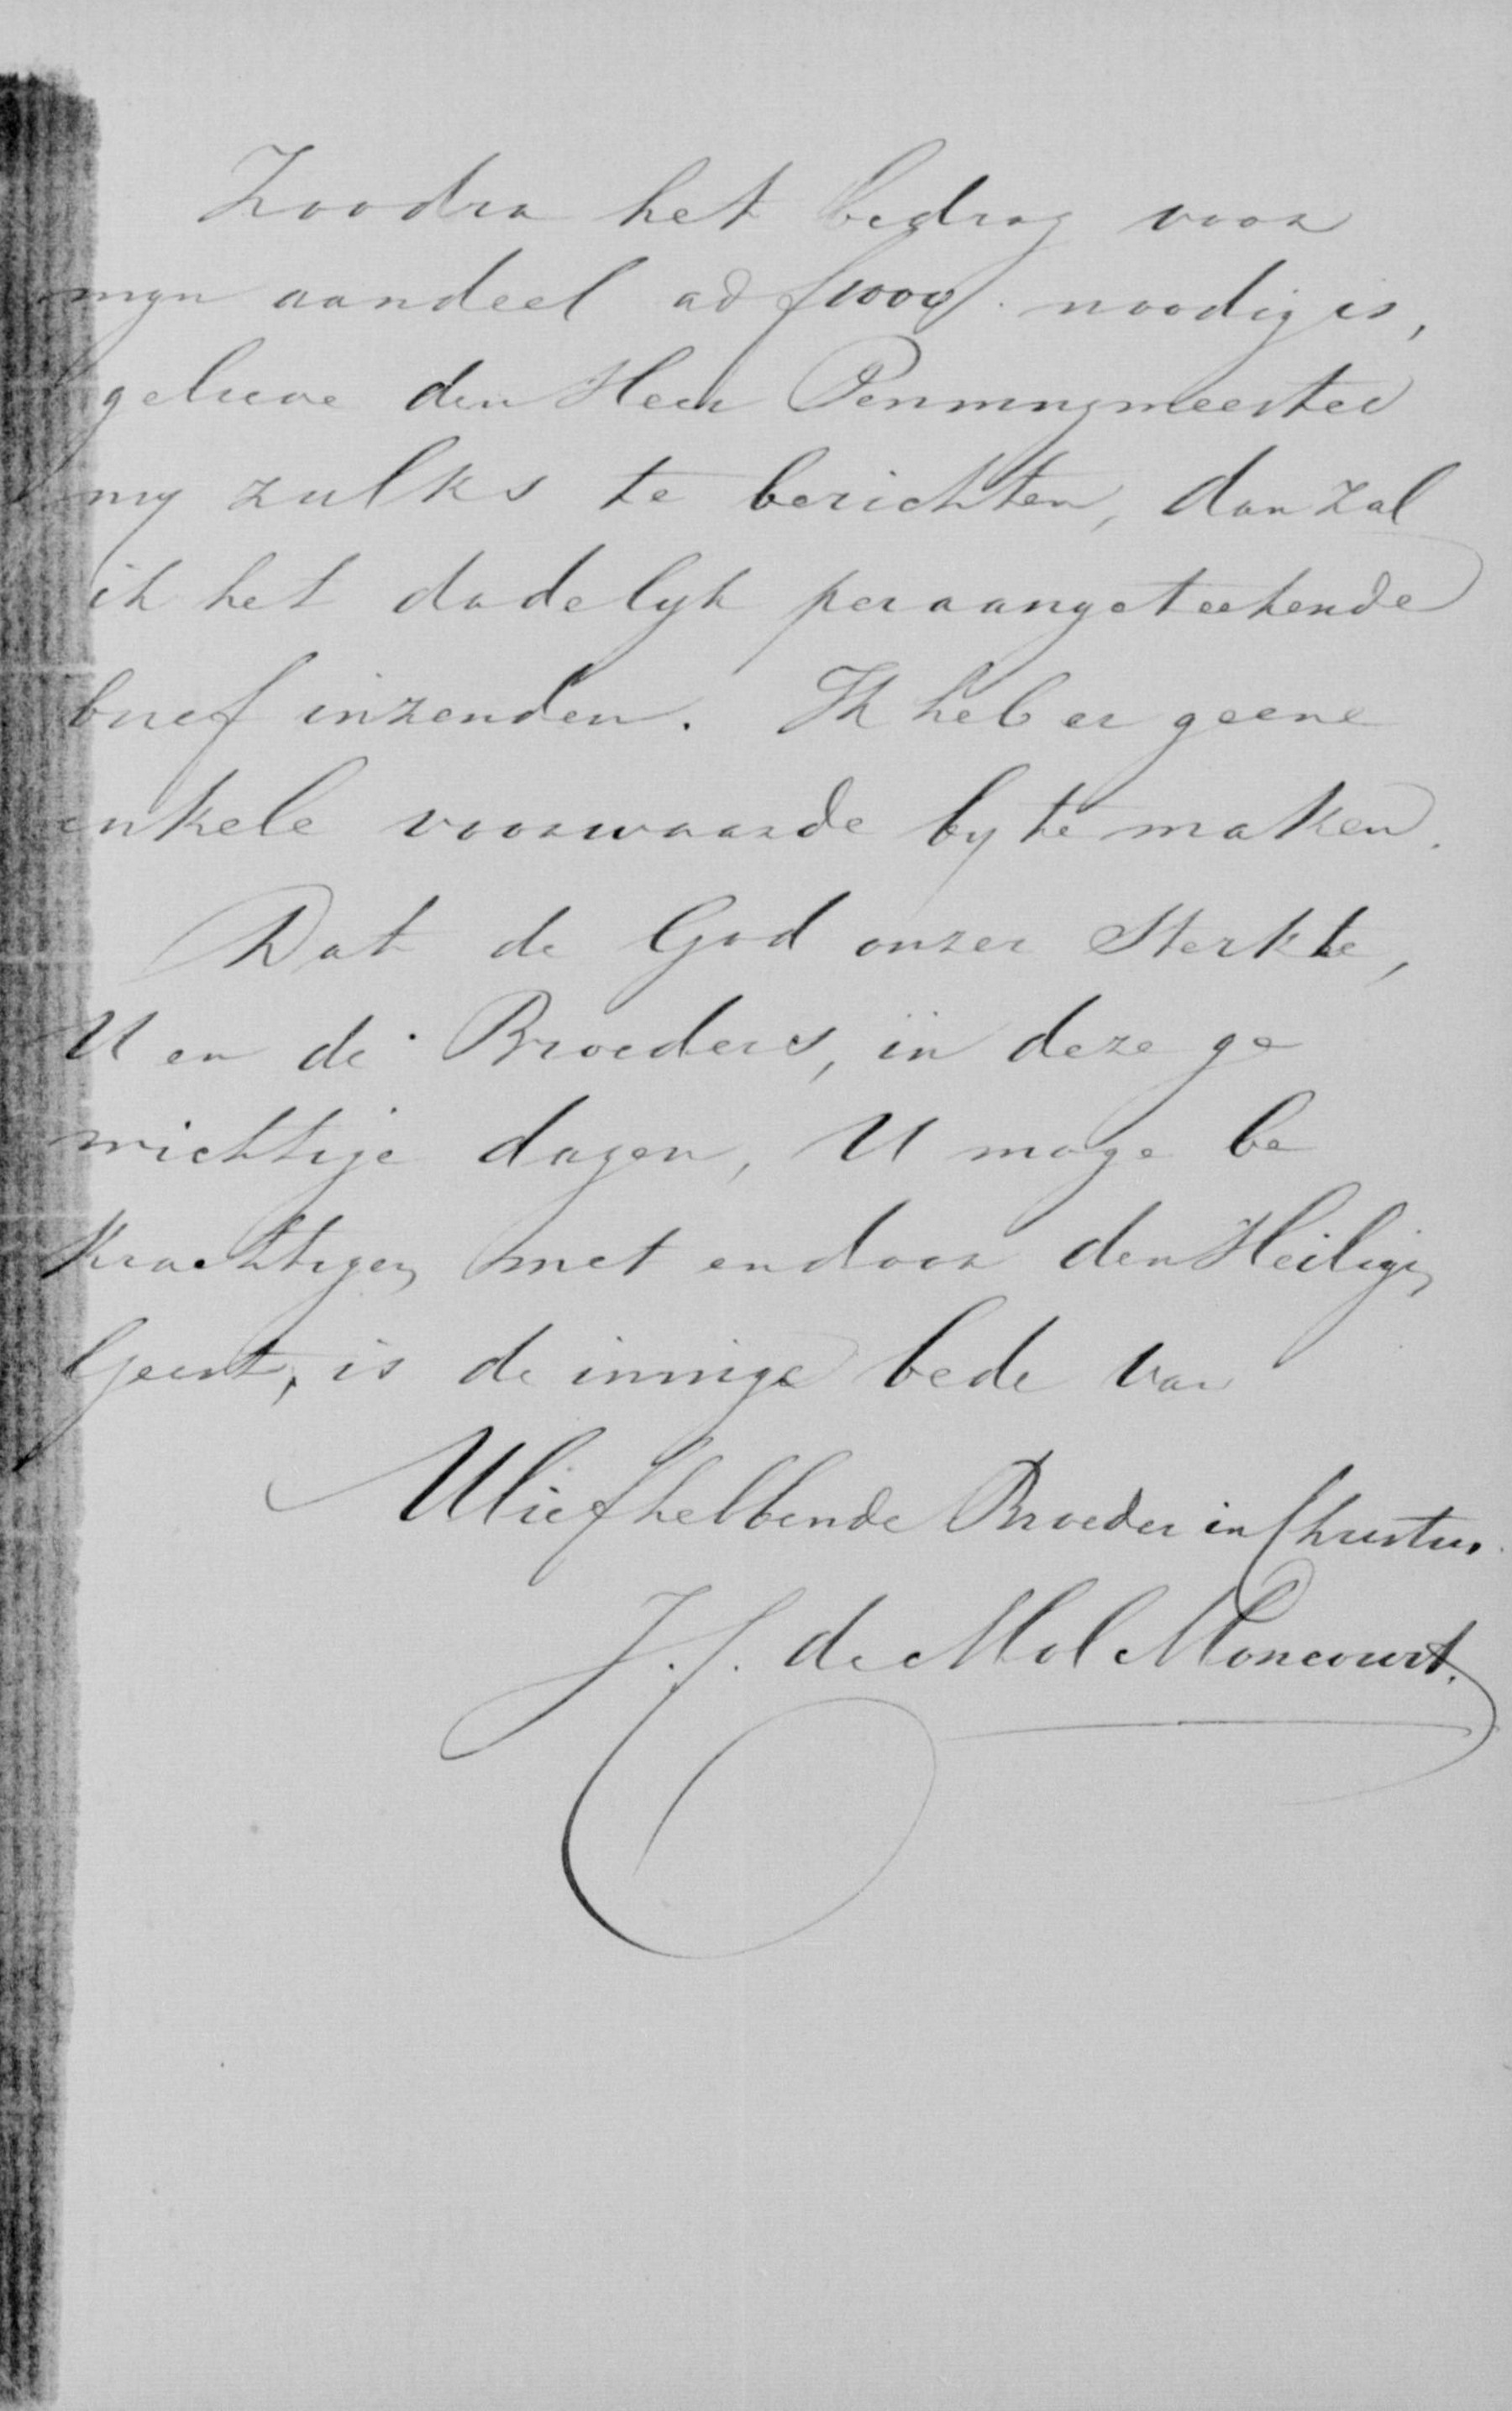 Zoodra het bedrag voor
myn aandeel ad f1000. noodig is,
gelieve den Heer Penningmeester
my zulks te berichten, dan zal
ik het dadelyk per aangeteekende
brief inzenden. Ik heb er geene
enkele voorwaarde by te maken.
Dat de God onzer Sterkte,
U en de Broeders, in deze ge
wichtige dagen, U moge be
krachtigen met en door den Heiligen
Geest, is de innige bede van
U liefhebbende Broeder in Christus.
J. J. de Mol Moncourt.